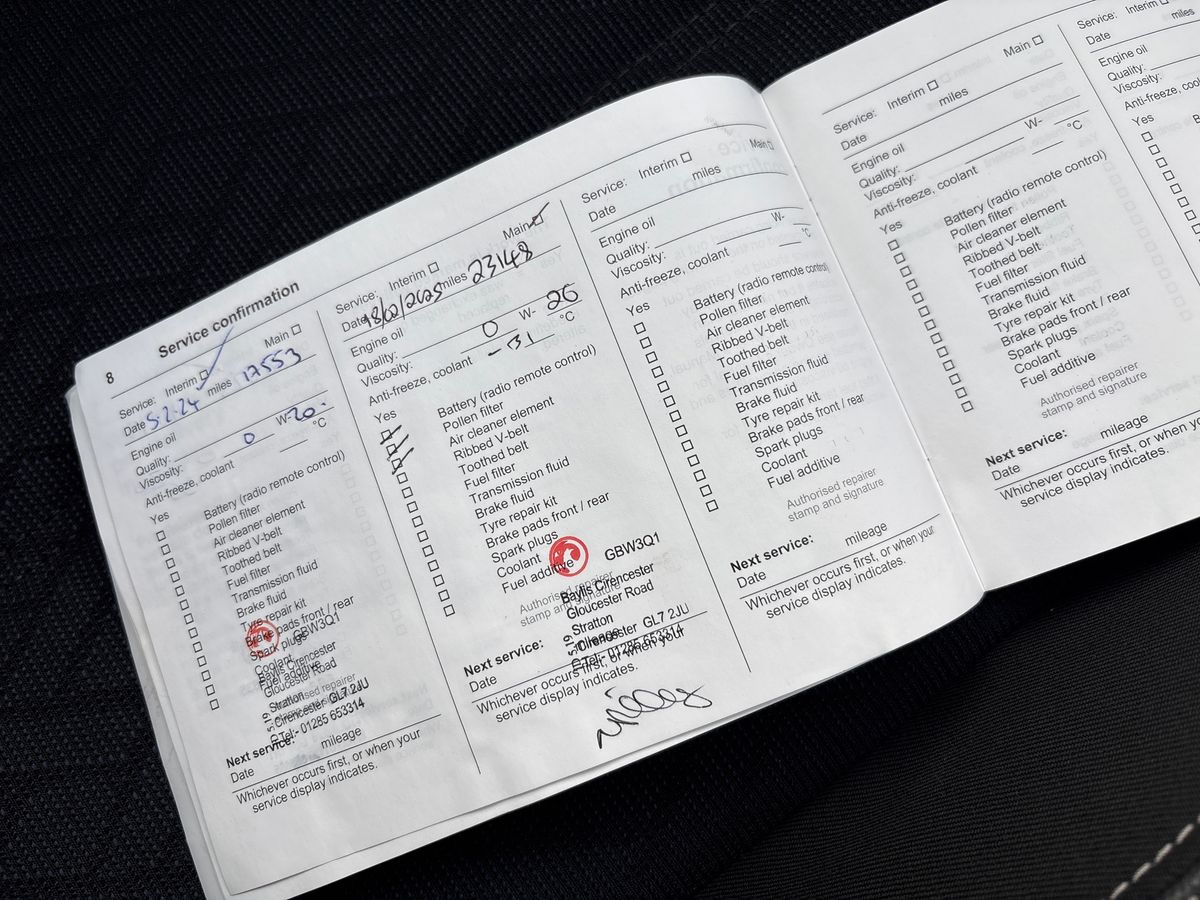 8
Service confirmation
Service: Interim Main
Date 5.2.24 miles 17553
Engine oil
Quality:
Viscosity: 0 W- 20.
Anti-freeze, coolant °C
Yes
Battery (radio remote control)
Pollen filter
Air cleaner element
Ribbed V-belt
Toothed belt
Fuel filter
Transmission fluid
Brake fluid
Tyre repair kit
Brake pads front / rear
Spark plugs
Coolant
Fuel additive
GBW3Q1
Baylis Cirencester
Gloucester Road
Stratton
Cirencester GL7 2JU
Tel:- 01285 653314
Authorised repairer
Next service:
Date mileage
Whichever occurs first, or when your
service display indicates.
Service: Interim Main
Date 18/02/2025 miles 23148
Engine oil
Quality:
Viscosity: 0 W- 20
Anti-freeze, coolant -31 °C
Yes
Battery (radio remote control)
Pollen filter
Air cleaner element
Ribbed V-belt
Toothed belt
Fuel filter
Transmission fluid
Brake fluid
Tyre repair kit
Brake pads front / rear
Spark plugs
Coolant
Fuel additive
GBW3Q1
Authorised repairer
stamp and signature
Baylis Cirencester
Gloucester Road
Stratton
Cirencester GL7 2JU
Tel:- 01285 653314
Next service:
Date mileage
Whichever occurs first, or when your
service display indicates.
Service: Interim Main
Date miles
Engine oil
Quality:
Viscosity: W-
Anti-freeze, coolant °C
Yes
Battery (radio remote control)
Pollen filter
Air cleaner element
Ribbed V-belt
Toothed belt
Fuel filter
Transmission fluid
Brake fluid
Tyre repair kit
Brake pads front / rear
Spark plugs
Coolant
Fuel additive
Authorised repairer
stamp and signature
Next service:
Date mileage
Whichever occurs first, or when your
service display indicates.
Service: Interim Main
Date miles
Engine oil
Quality:
Viscosity: W-
Anti-freeze, coolant °C
Yes
Battery (radio remote control)
Pollen filter
Air cleaner element
Ribbed V-belt
Toothed belt
Fuel filter
Transmission fluid
Brake fluid
Tyre repair kit
Brake pads front / rear
Spark plugs
Coolant
Fuel additive
Authorised repairer
stamp and signature
Next service:
Date mileage
Whichever occurs first, or when
service display indicates.
Service: Interim
Date miles
Engine oil
Quality:
Viscosity:
Anti-freeze,
Yes